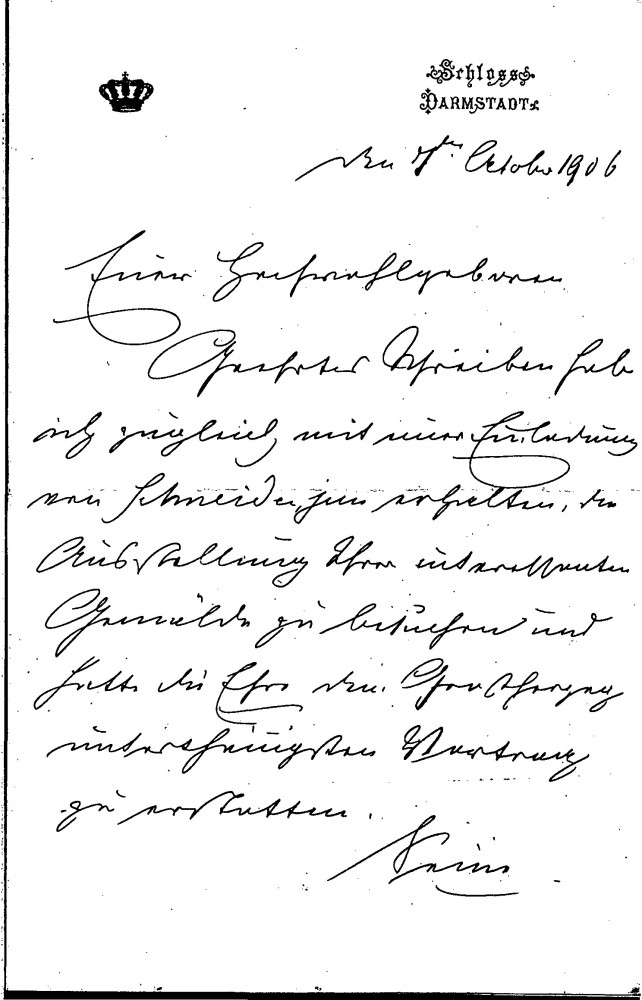 Schloss
DARMSTADT
den 7ten October 1906
Euer Hochwohlgeboren
Geehrtes Schreiben habe
ich zugleich mit einer Einladung
von Schneider jun erhalten, die
Ausstellung Ihrer interessanten
Gemälde zu besuchen und
hatte die Ehre dem Großherzog
unterthänigsten Vortrag
zu erstatten.
Seine